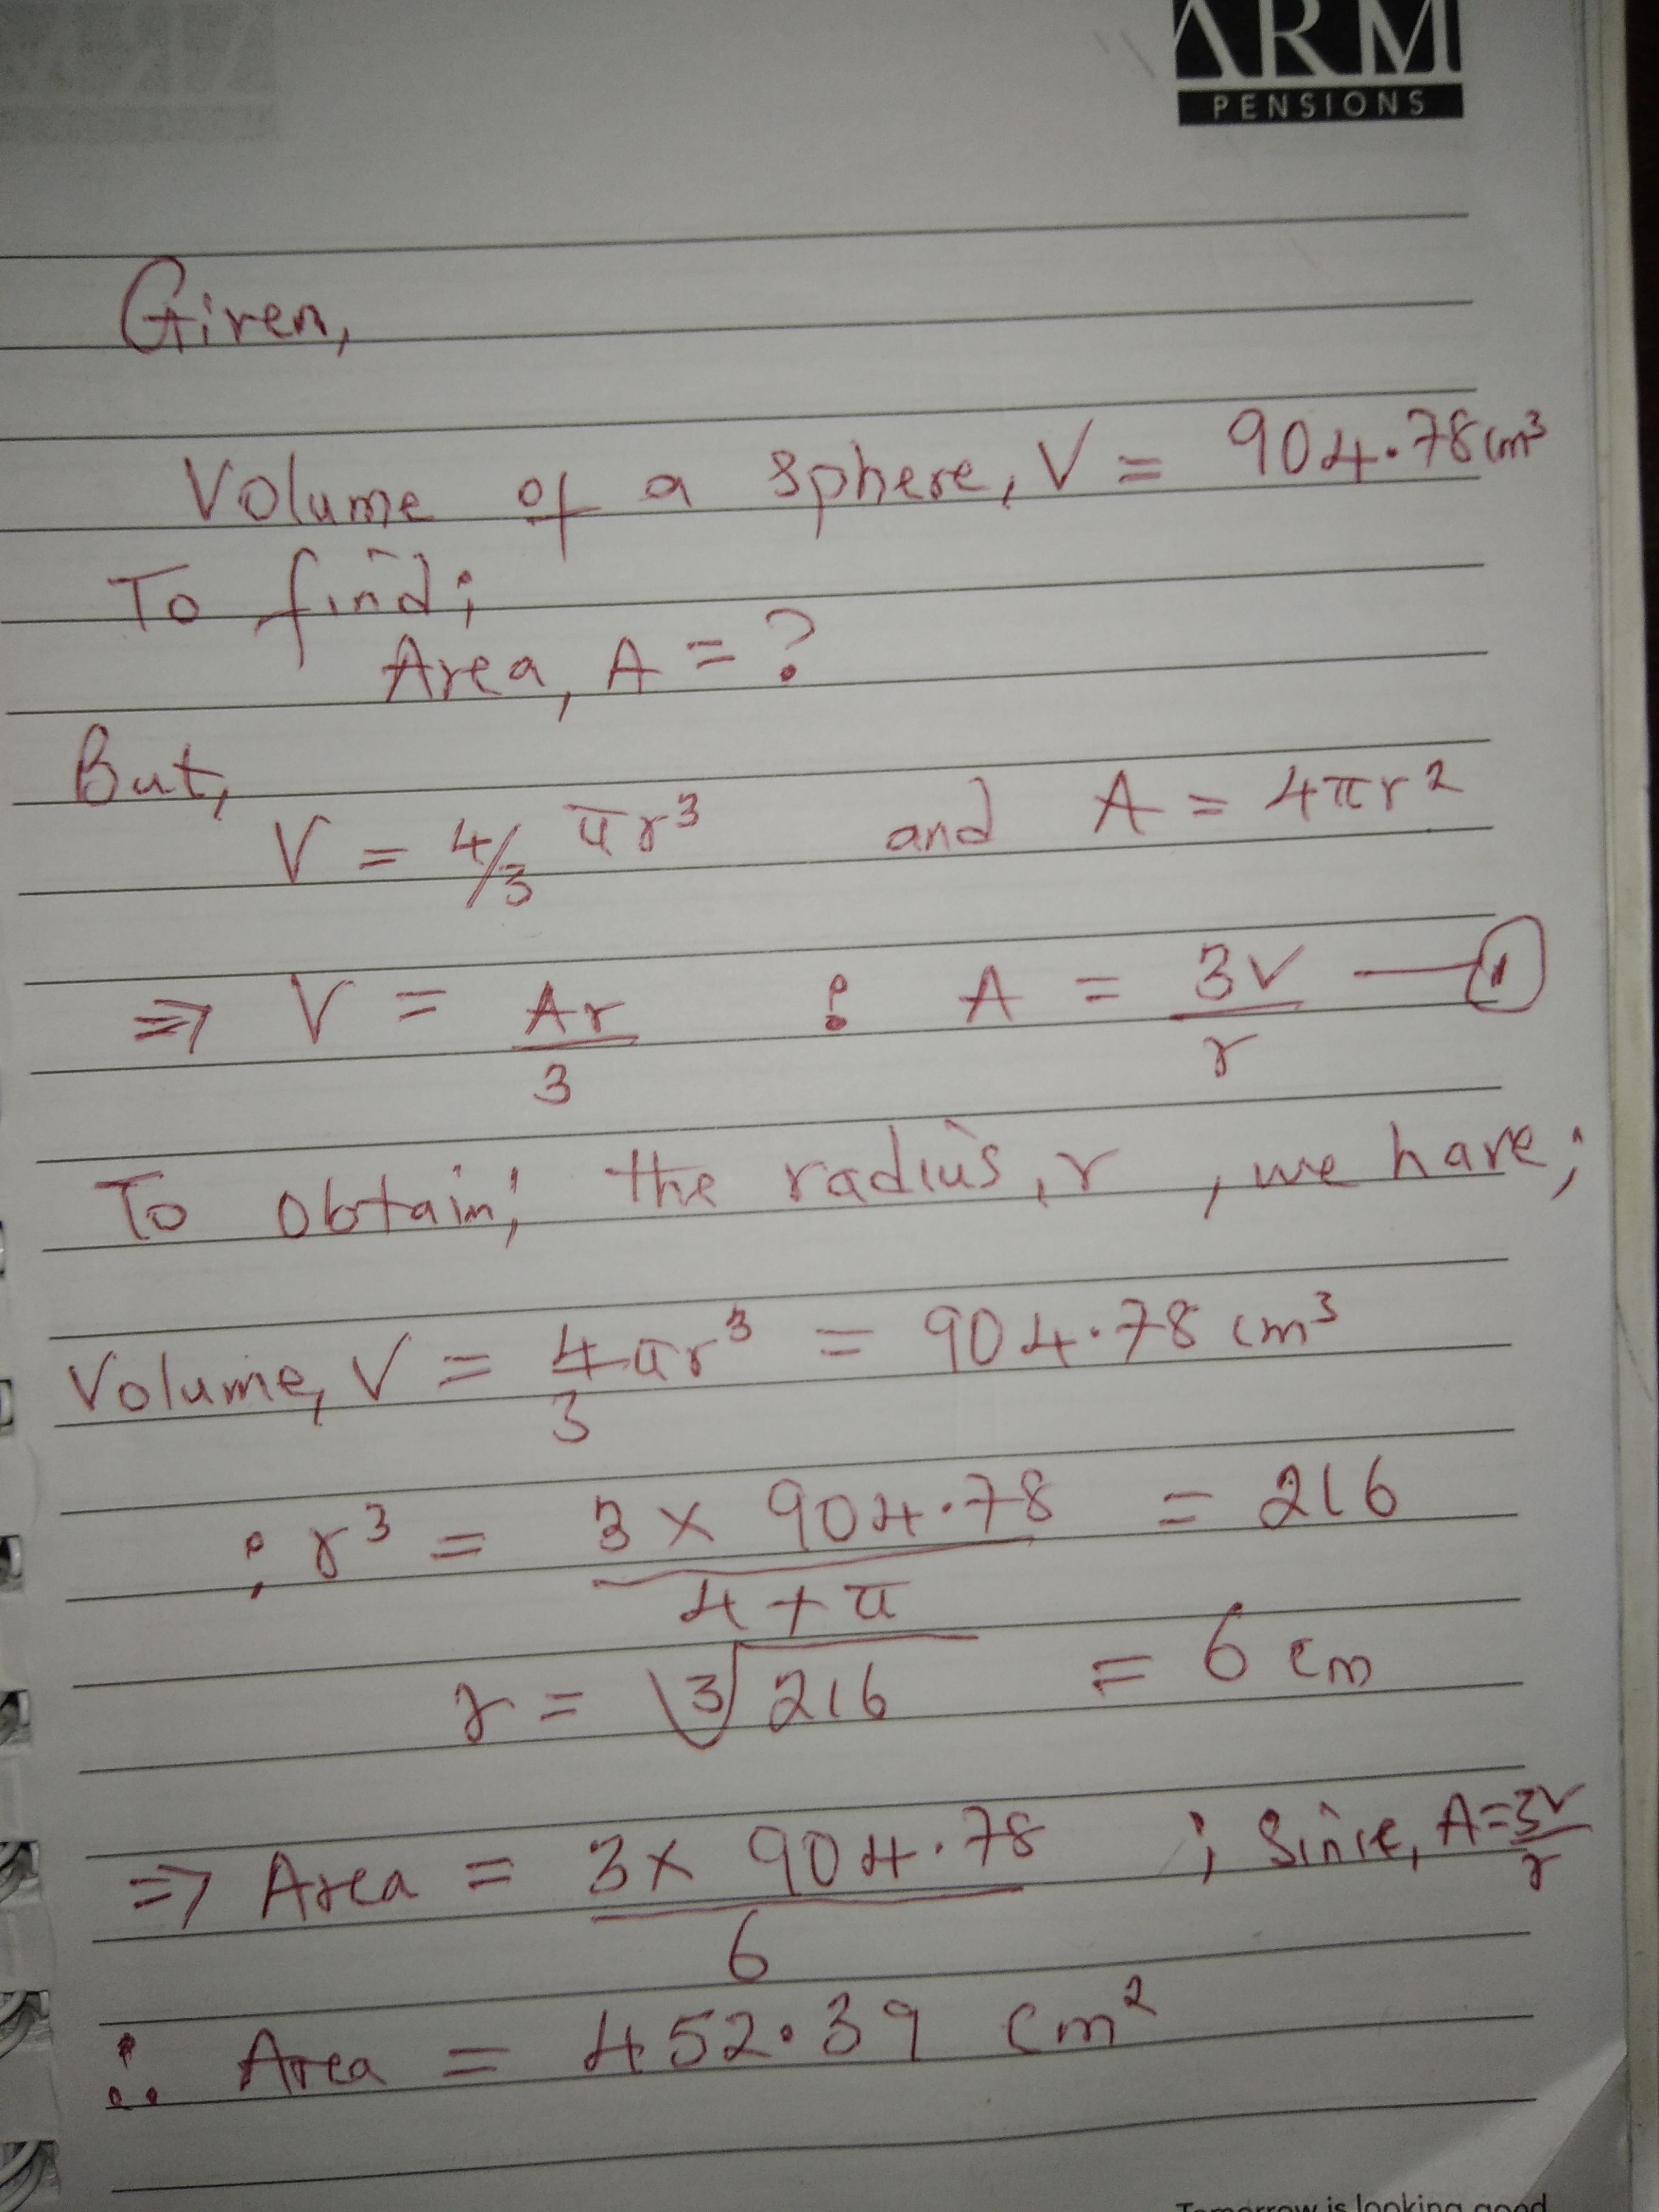 ARM
PENSIONS
Given,
Volume of a sphere, V = 904.78cm³
To find;
Area, A = ?
But,
V = 4/3 πr³ and A = 4πr²
⇒ V = Ar/3 : A = 3V/r — ①
To obtain; the radius, r , we have;
Volume, V = 4πr³/3 = 904.78 cm³
; r³ = 3 × 904.78 / 4 + π = 216
r = ∛216 = 6 cm
⇒ Area = 3 × 904.78 / 6 ; Since, A = 3V/r
∴ Area = 452.39 cm²
Tomorrow is looking good